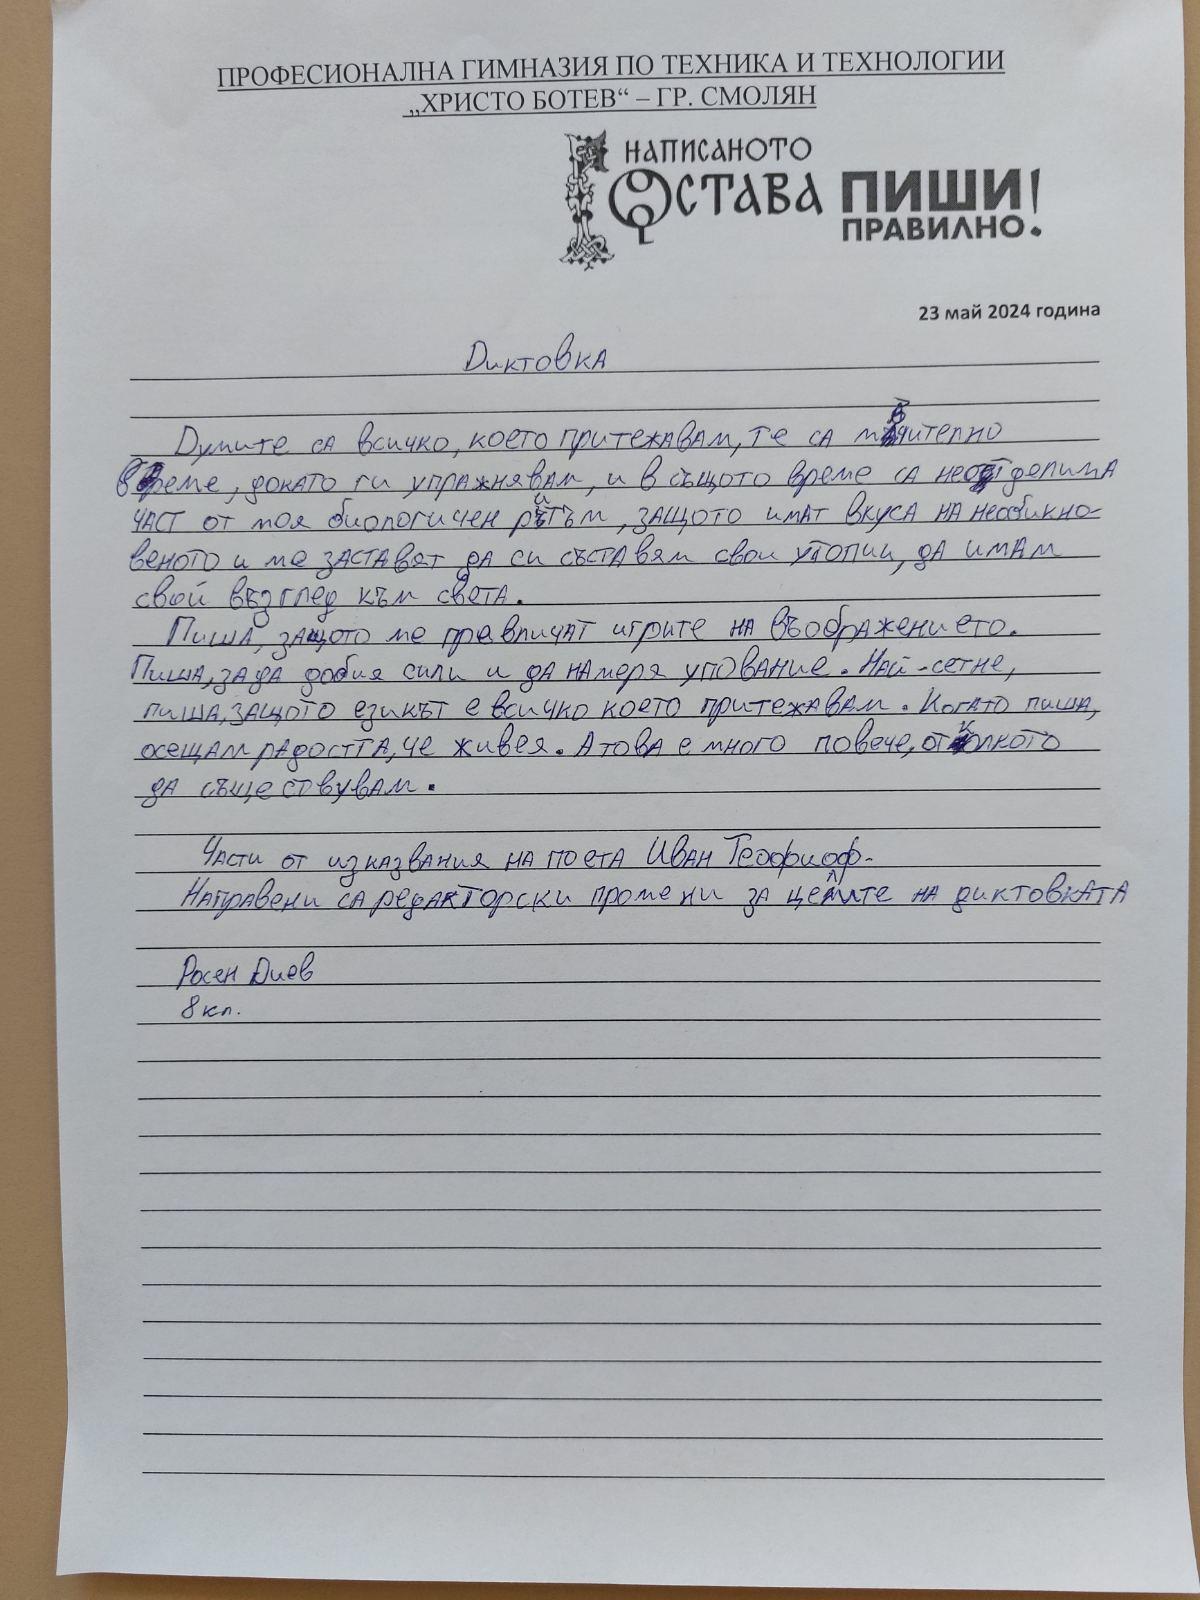 ПРОФЕСИОНАЛНА ГИМНАЗИЯ ПО ТЕХНИКА И ТЕХНОЛОГИИ
„ХРИСТО БОТЕВ“ – ГР. СМОЛЯН
НАПИСАНОТО
ОСТАВА ПИШИ
ПРАВИЛНО!
23 май 2024 година
Диктовка
Думите са всичко, което притежавам, те са
време, докато ги упражнявам, и в същото време са неотделима
част от моя биологичен ритъм, защото имат вкуса на необикно-
веното и ме заставят да си съставям свои утопии, да имам
свой възглед към света.
Пиша, защото ме превличат игрите на въображението.
Пиша, за да добия сили и да намеря упование. Най-сетне,
пиша, защото езикът е всичко което притежавам. Когато пиша,
осещам радостта, че живея. А това е много повече, отколкото
да съществувам.
Части от изказвания на поета Иван Теофилоф.
Направени са редакторски промени за целите на диктовката
Росен Диев
8 кл.